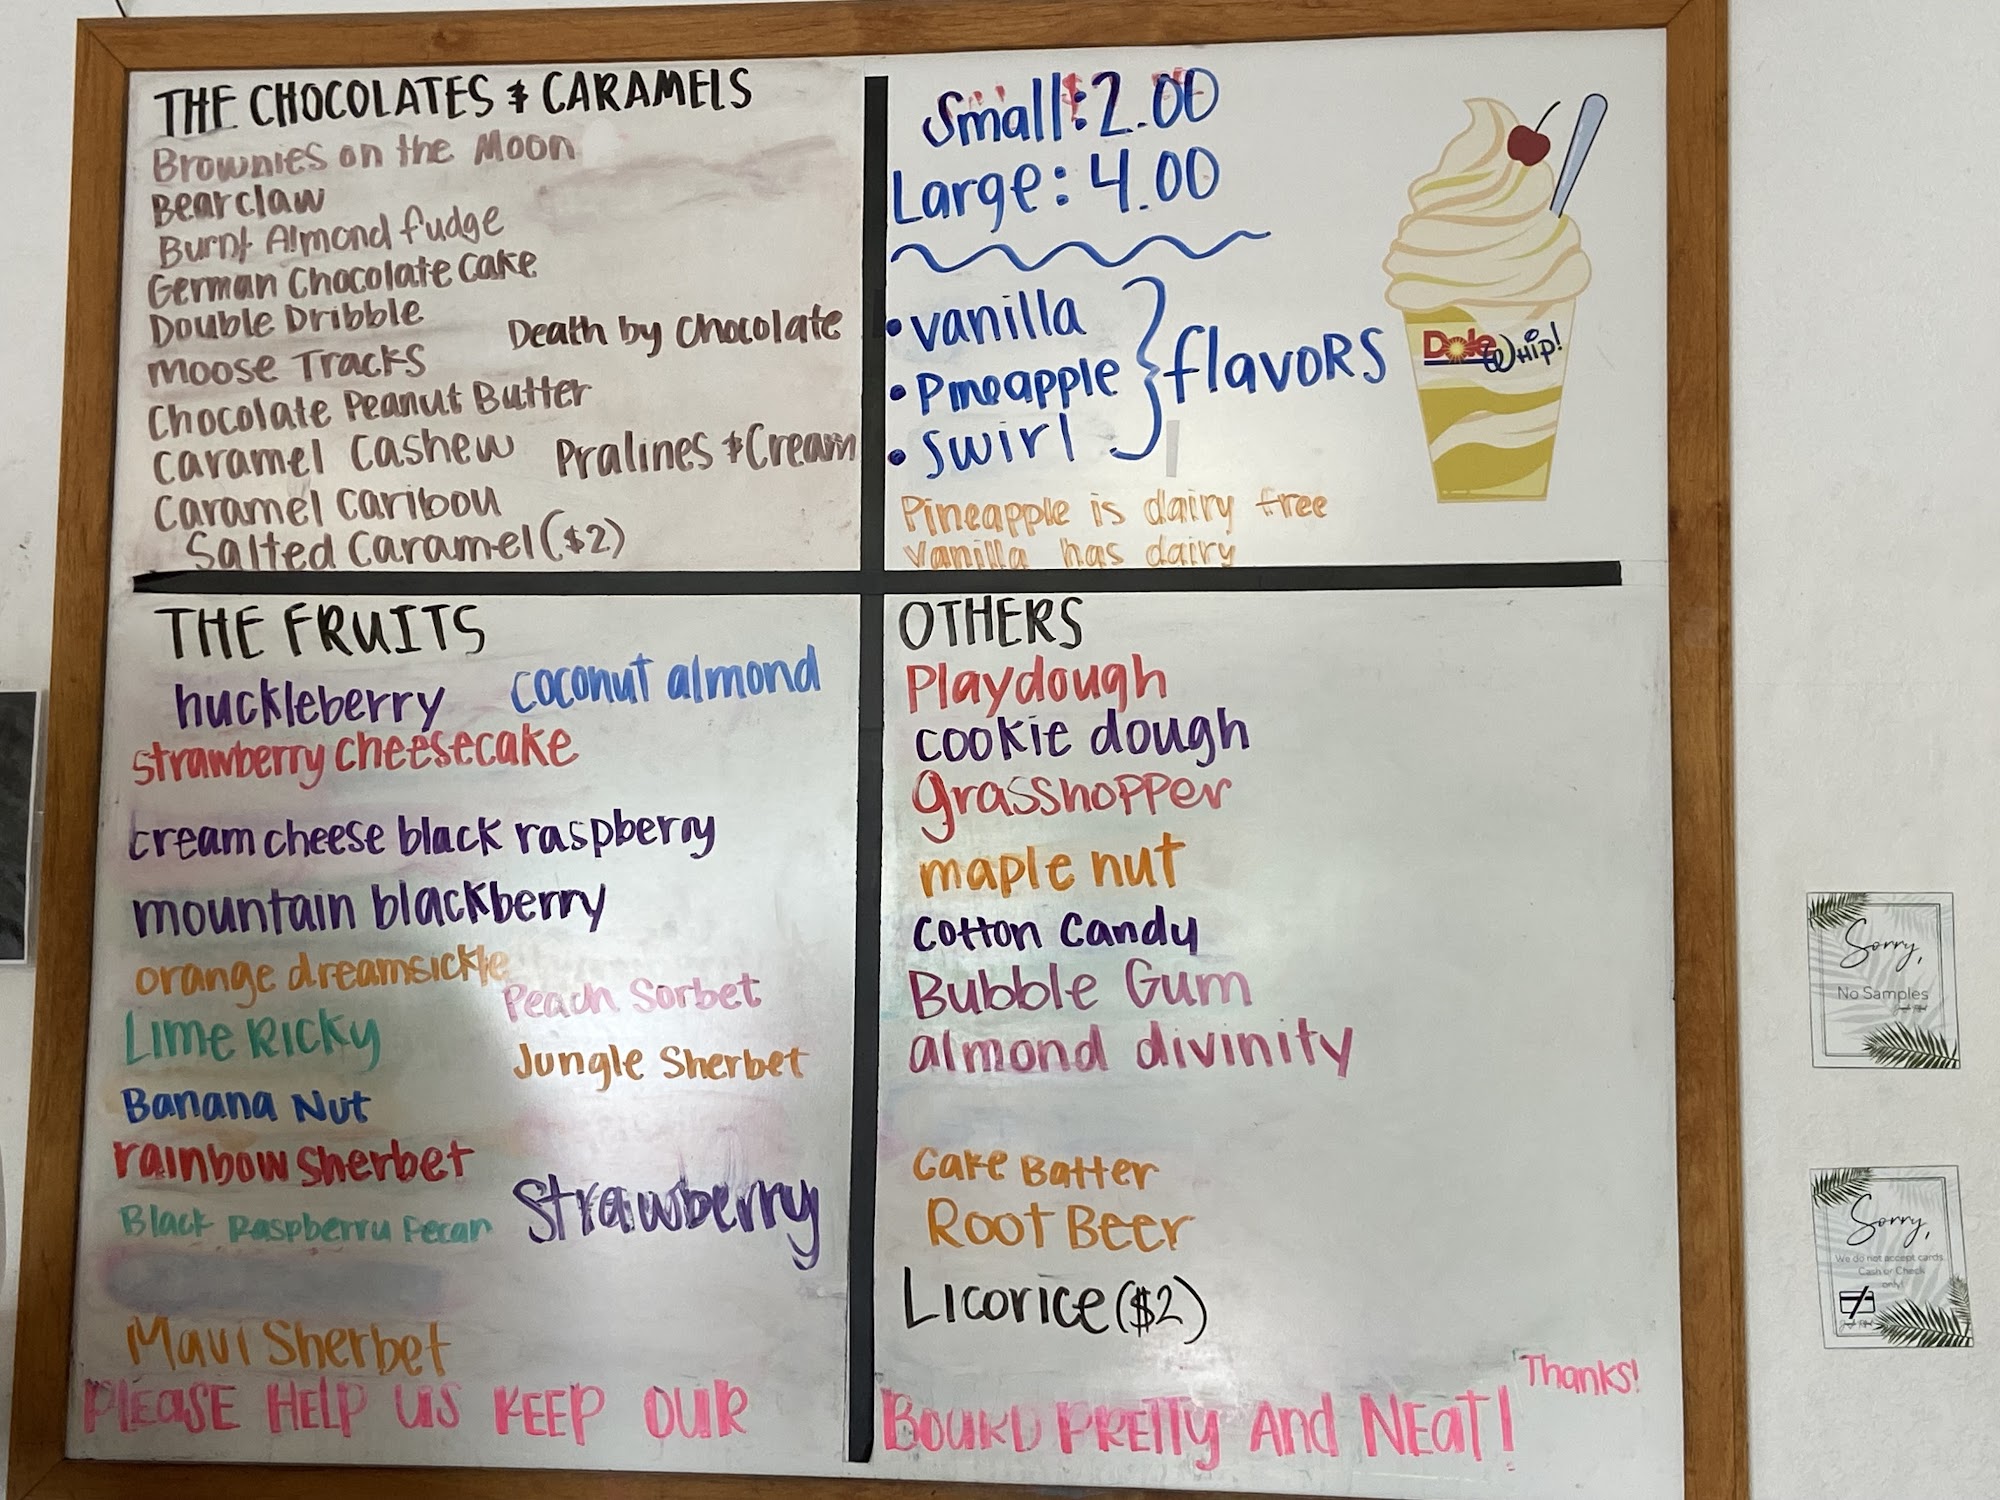 THE CHOCOLATES & CARAMELS
Brownies on the Moon
Bearclaw
Burnt Almond fudge
German Chocolate Cake
Double Dribble
Death by Chocolate
Moose Tracks
Chocolate Peanut Butter
Caramel Cashew
Pralines & Cream
Caramel Caribou
Salted Caramel ($2)
Small: 2.00
Large: 4.00
• vanilla
• Pineapple
• swirl
flavors
Pineapple is dairy free
Vanilla has dairy
Dole Whip!
THE FRUITS
huckleberry
coconut almond
strawberry cheesecake
cream cheese black raspberry
mountain blackberry
orange dreamsickle
Peach Sorbet
Lime Ricky
Jungle Sherbet
Banana Nut
rainbow sherbet
Black Raspberry Pecan
Strawberry
Maui Sherbet
OTHERS
Playdough
cookie dough
grasshopper
maple nut
cotton candy
Bubble Gum
almond divinity
Cake Batter
Root Beer
Licorice ($2)
PLEASE HELP US KEEP OUR BOARD PRETTY AND NEAT! Thanks!
Sorry,
No Samples
Sorry,
We do not accept cards.
Cash or Check
only!